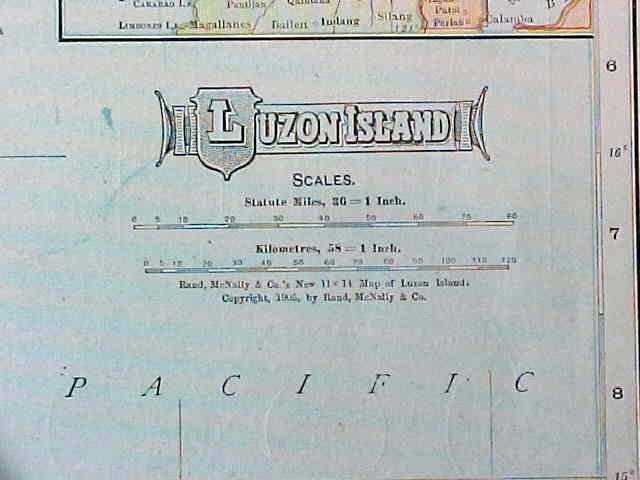 CARABAO I.
LIMBONES I.
Magallanes
Bailen
Indang
Silang
Calamba
6
LUZON ISLAND
16°
SCALES.
Statute Miles, 36 = 1 Inch.
0 5 10 20 30 40 50 60 70 80
7
Kilometres, 58 = 1 Inch.
0 5 10 20 30 40 50 60 70 80 90 100 110 120
Rand, McNally & Co.'s New 11 × 14 Map of Luzon Island.
Copyright, 1905, by Rand, McNally & Co.
PACIFIC
8
15°